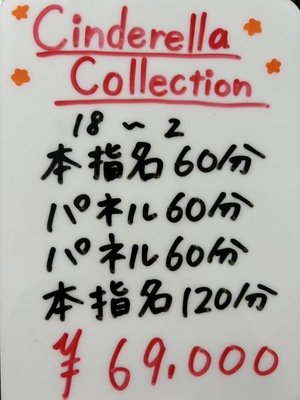 Cinderella
Collection
18～2
本指名60分
パネル60分
パネル60分
本指名120分
¥69.000